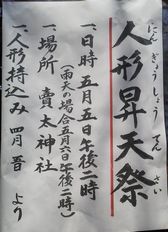 人形昇天祭
にんぎょうしょうてんさい
一、日時 五月五日午後二時
(雨天の場合五月六日午後二時)
一、場所 賣太神社
一、人形持込み 四月 より